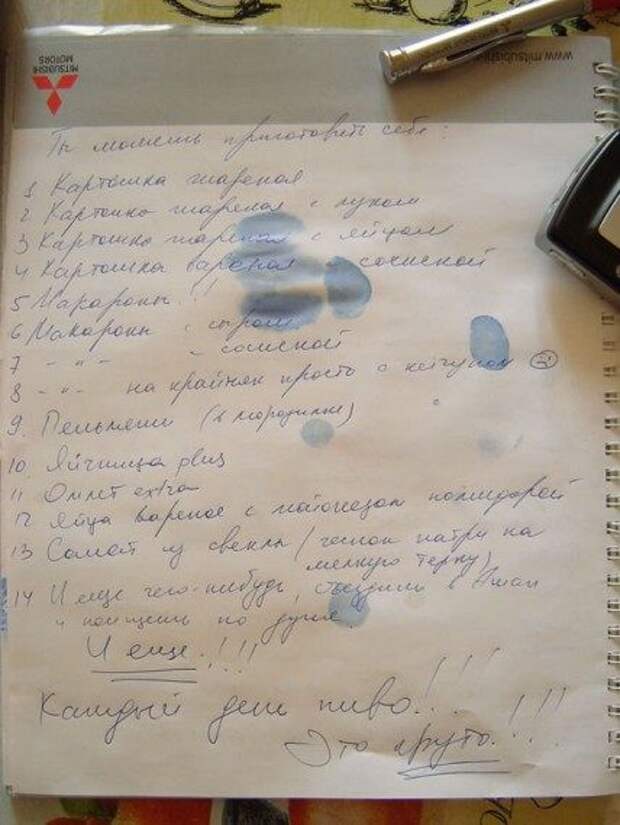 MITSUBISHI
MOTORS
www.mitsubishi
Ты можешь приготовить себе:
1 Картошка жареная
2 Картошка жареная с луком
3 Картошка жареная с яйцом
4 Картошка вареная сосиской
5 Макароны!!
6 Макароны с сыром
7 - " - с сосиской
8 - " - на крайняк просто с кетчупом
9. Пельмени (в морозилке)
10. Яичница plus
11 Омлет extra
12 Яйца вареное с майонезом помидорой
13 Салат из свеклы (чеснок натри на
мелкую терку)
14 И еще чего-нибудь, съездишь в Ашан
и поищешь по душе.
И еще!!!
Каждый день пиво!!!
Это круто!!!